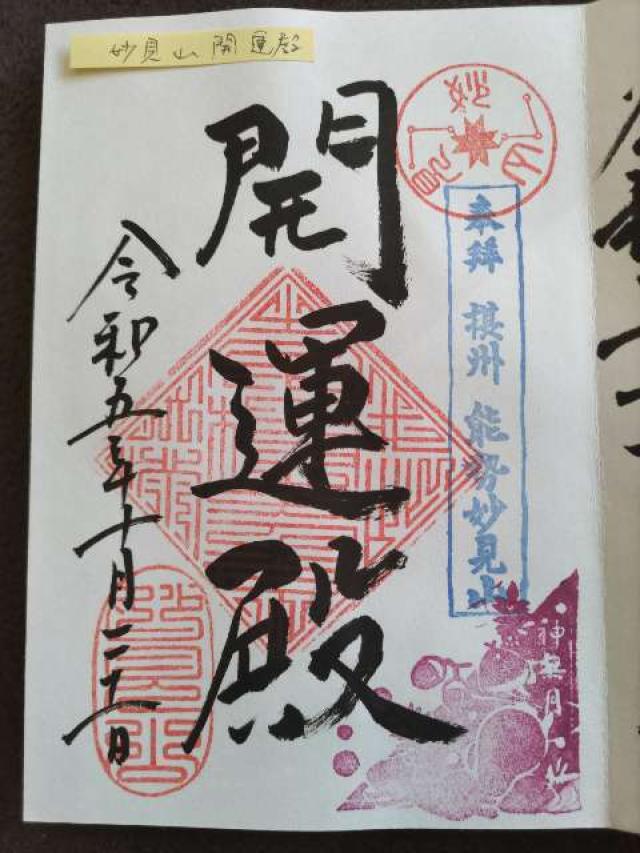 妙見山開運殿
奉拝 摂州 能勢妙見山
開運殿
令和五年十月二十一日
神無月